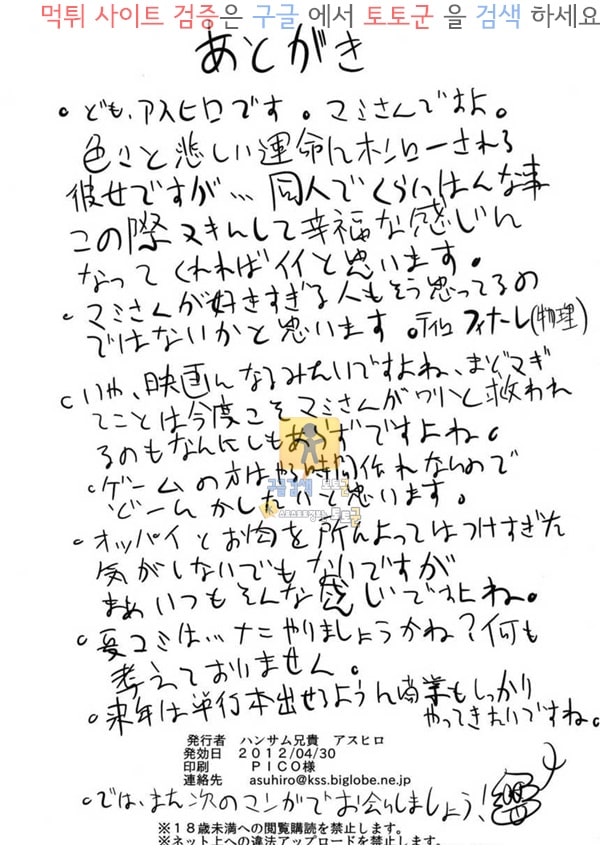 먹튀 사이트 검증은 구글 에서 토토군 을 검색 하세요
あとがき
。ども、アスヒロです。マミさんですよ。
色々と悲しい運命にホンローされる
彼女ですが… 同人でくらい
この際ヌキにして幸福な感じに
なってくれればイイと思います。
。マミさんが好きすぎる人もそう思ってるの
ではないかと思います。ティロ フィナーレ(物理)
。いや、映画になるみたいですよね、まどマギ
てことは今度こそマミさんが 救われ
るのもなんにしもあらずですよね。
。ゲームの方はやる時間作れないので
どーにかしたいと思います。
。オッパイとお肉を所によってはつけすぎた
気がしないでもないですが
まあいつもそんな感じですよね。
。夏コミは…ナニやりましょうかね?何も
考えておりません。
。来年は単行本出せるように商業もしっかり
やってきたいですね。
発行者 ハンサム兄貴 アスヒロ
発効日 2012/04/30
印刷 PICO様
連絡先 asuhiro@kss.biglobe.ne.jp
。では、また次のマンガでお会いしましょう!
※18歳未満への閲覧購読を禁止します。
※ネット上への違法アップロードを禁止します。